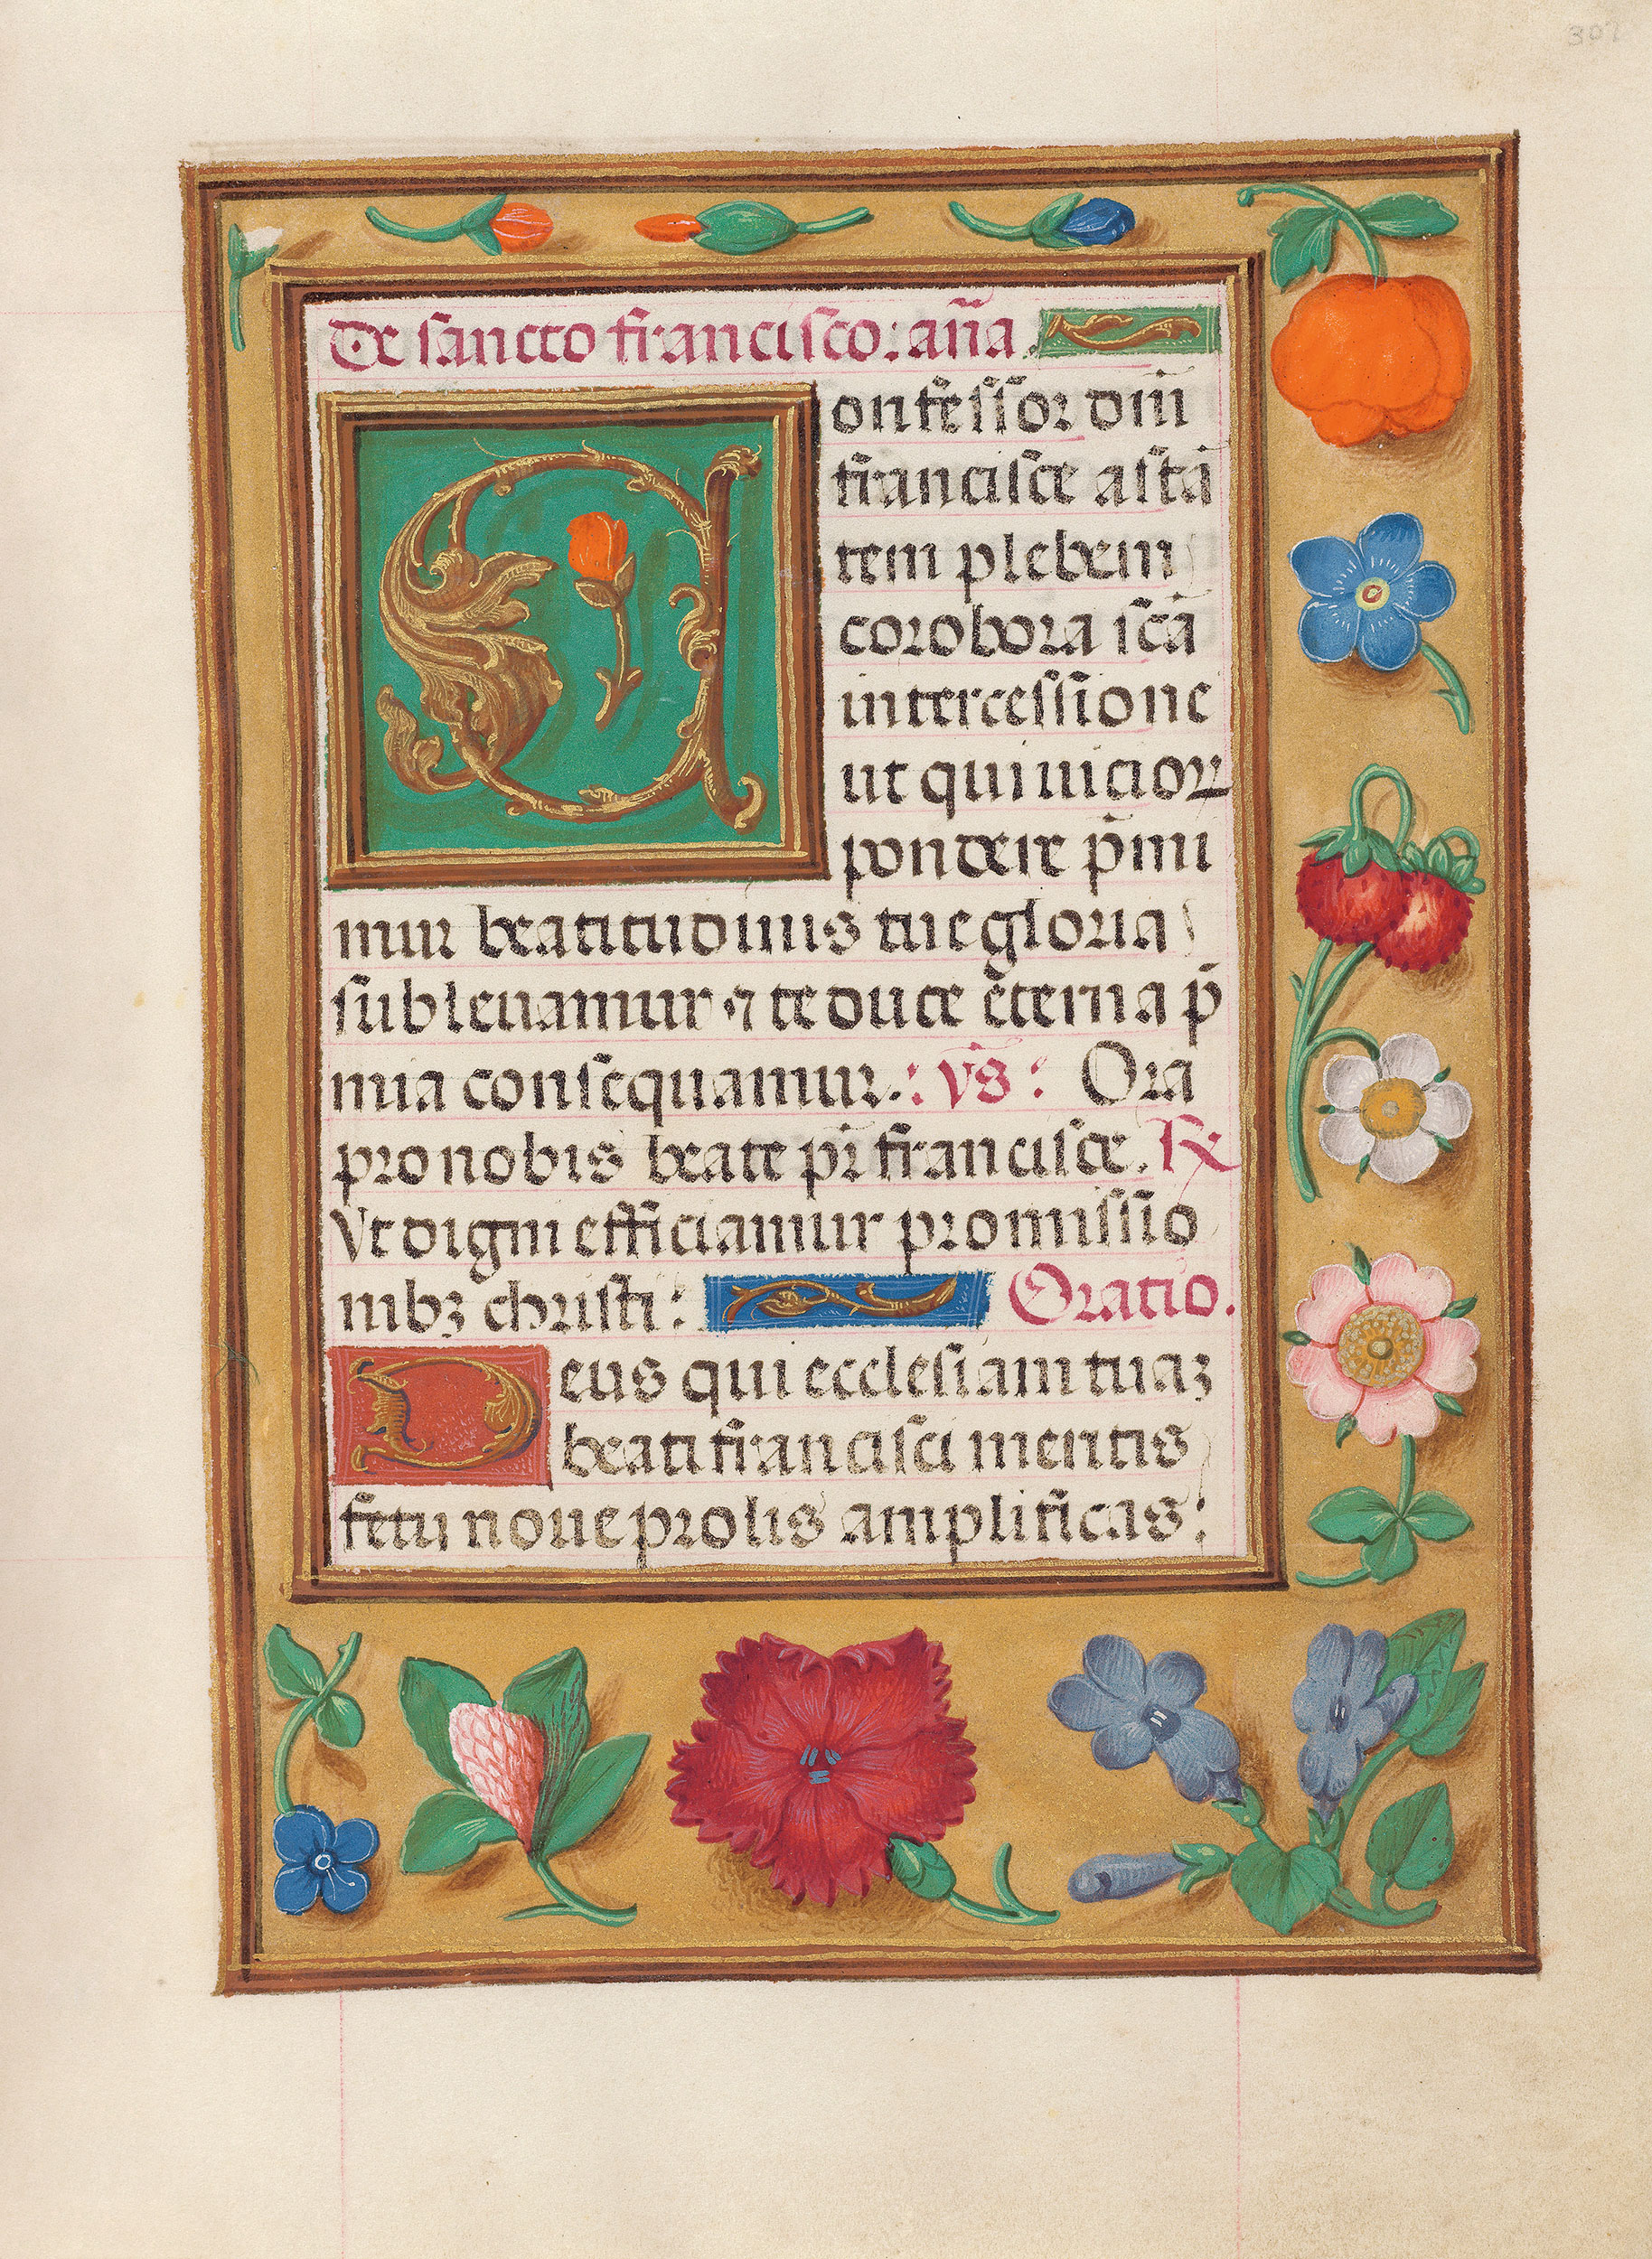 307
De sancto francisco: an̄a.
Confessor dn̄i
francisce astā
tem plebem
corobora sc̄ā
intercessione
ut qui uicioꝝ
pondere p̄mi
mur beatitudinis tue gloria
subleuamur ⁊ te duce ēterna p̄
mia consequamur.: v̄s: Ora
pro nobis beate pr̄ francisce. ℟
Vt digni efficiamur promissio
nibꝫ christi: Oratio.
Deus qui ecclesiam tuaꝫ
beati francisci meritis
fetu noue prolis amplificas: